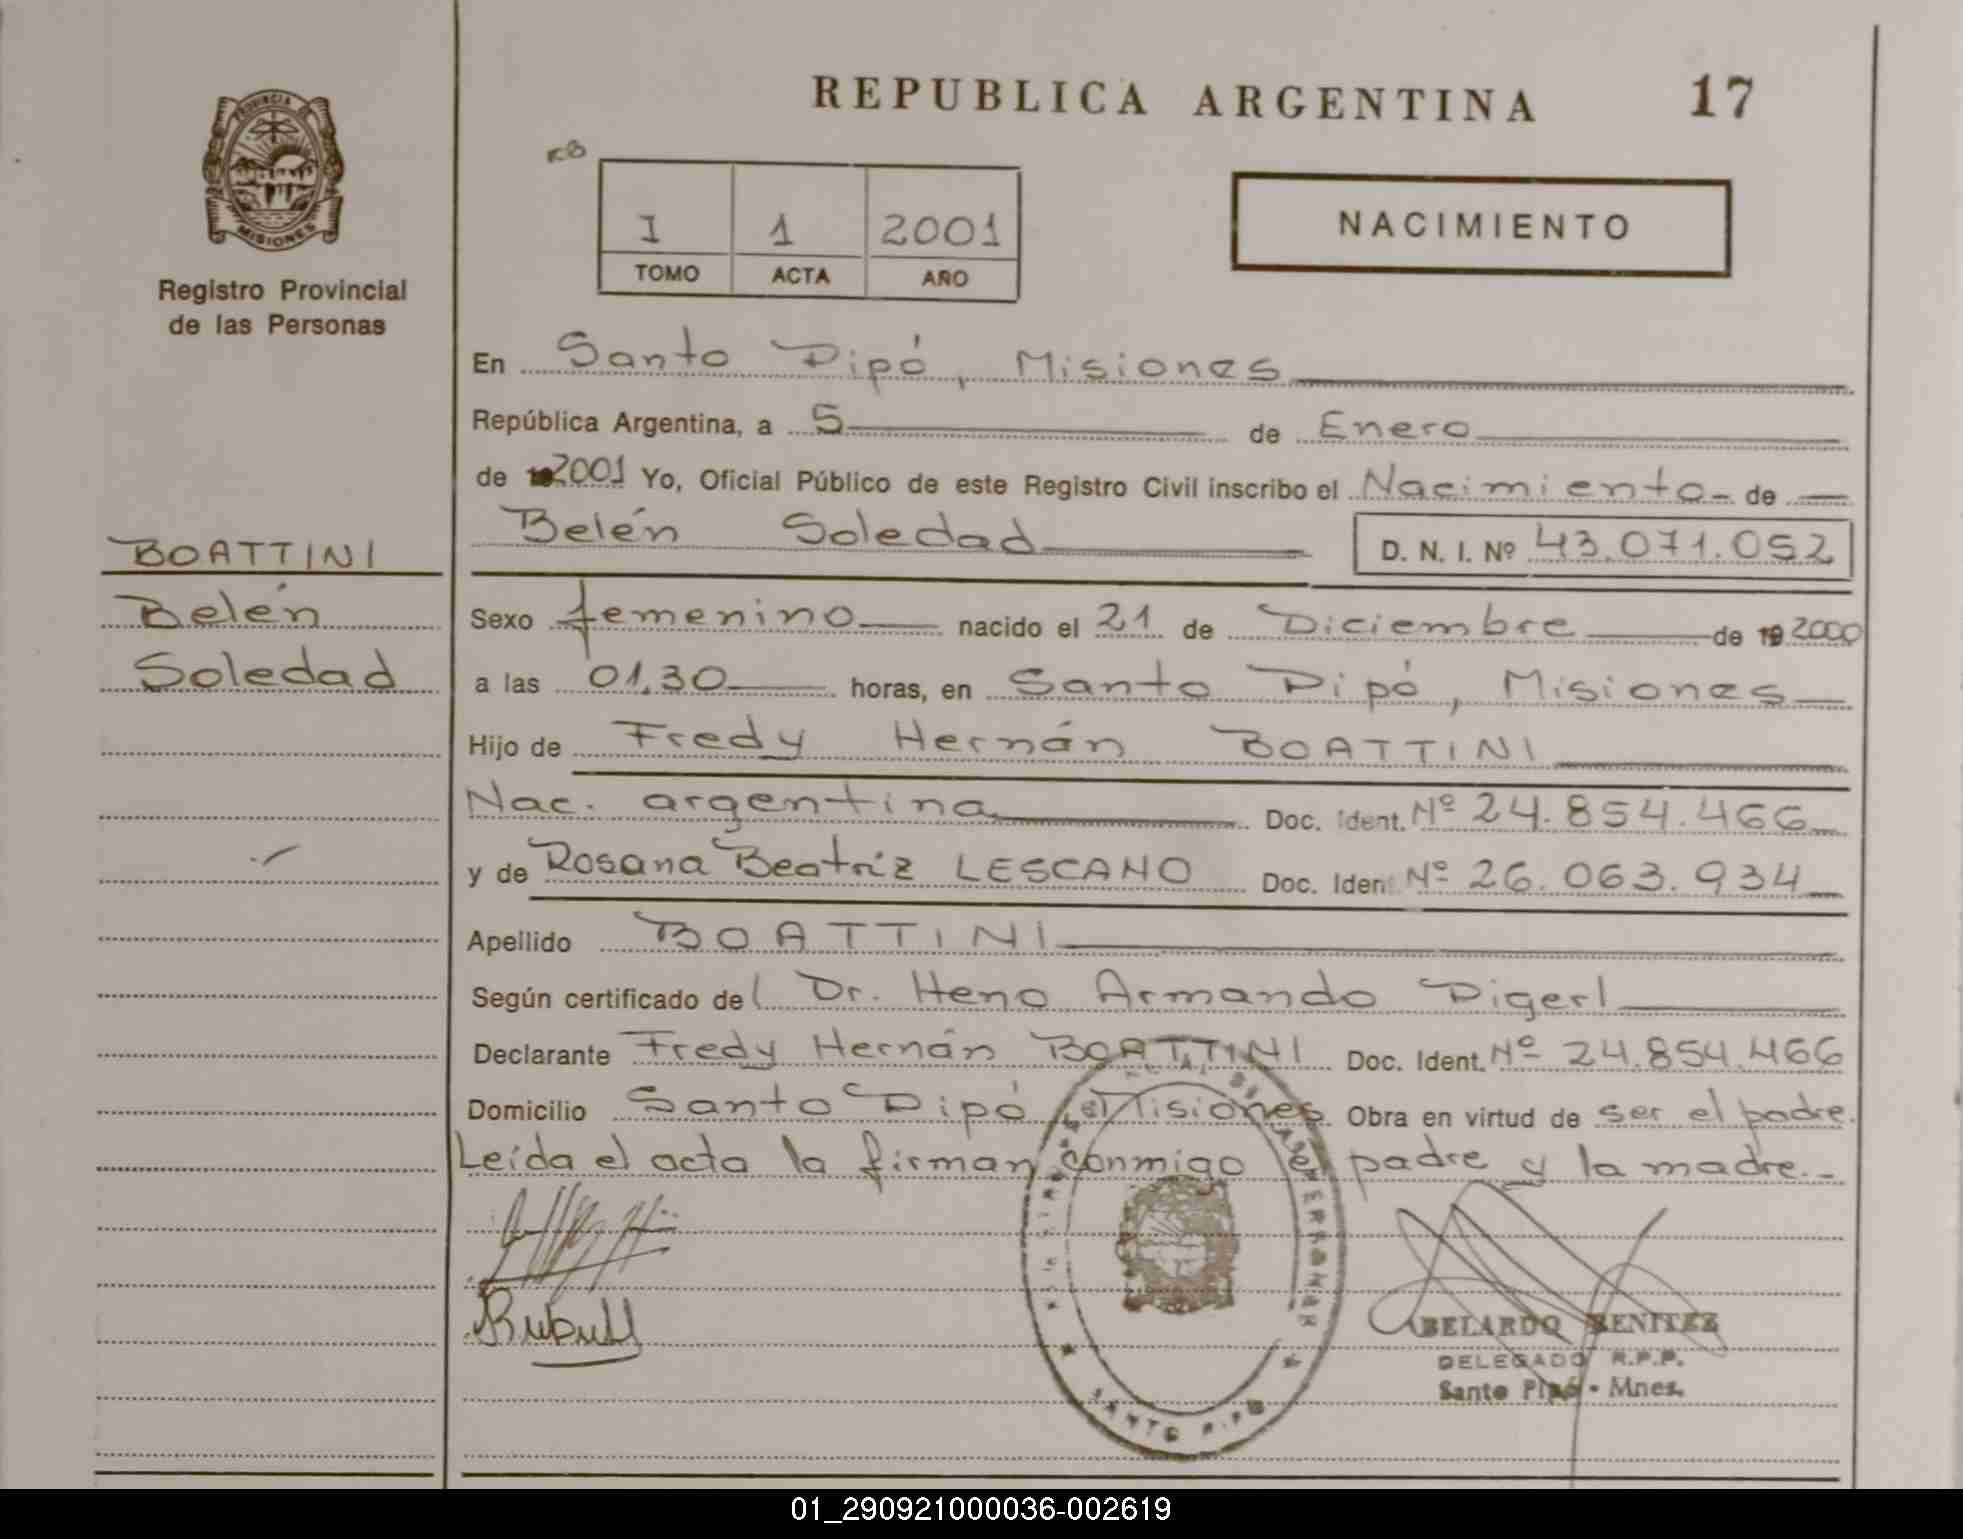 REPUBLICA ARGENTINA 17
PROVINCIA
MISIONES
Registro Provincial
de las Personas
I 1 2001
TOMO ACTA AÑO
NACIMIENTO
En Santo Pipó, Misiones
República Argentina, a 5 de Enero
de 2001 Yo, Oficial Público de este Registro Civil inscribo el Nacimiento de
Belén Soledad D. N. I. Nº 43.071.052
BOATTINI
Belén
Soledad
Sexo femenino nacido el 21 de Diciembre de 19 2000
a las 01,30 horas, en Santo Pipó, Misiones
Hijo de Fredy Hernán BOATTINI
Nac. argentina Doc. Ident. Nº 24.854.466
y de Rosana Beatriz LESCANO Doc. Ident. Nº 26.063.934
Apellido BOATTINI
Según certificado del Dr. Heno Armando Digerl
Declarante Fredy Hernán BOATTINI Doc. Ident. Nº 24.854.466
Domicilio Santo Pipó, Misiones Obra en virtud de ser el padre.
Leída el acta la firman conmigo el padre y la madre.-
SANTO PIPO
ABELARDO BENITEZ
DELEGADO R.P.P.
Santo Pipó - Mnes.
01_290921000036-002619